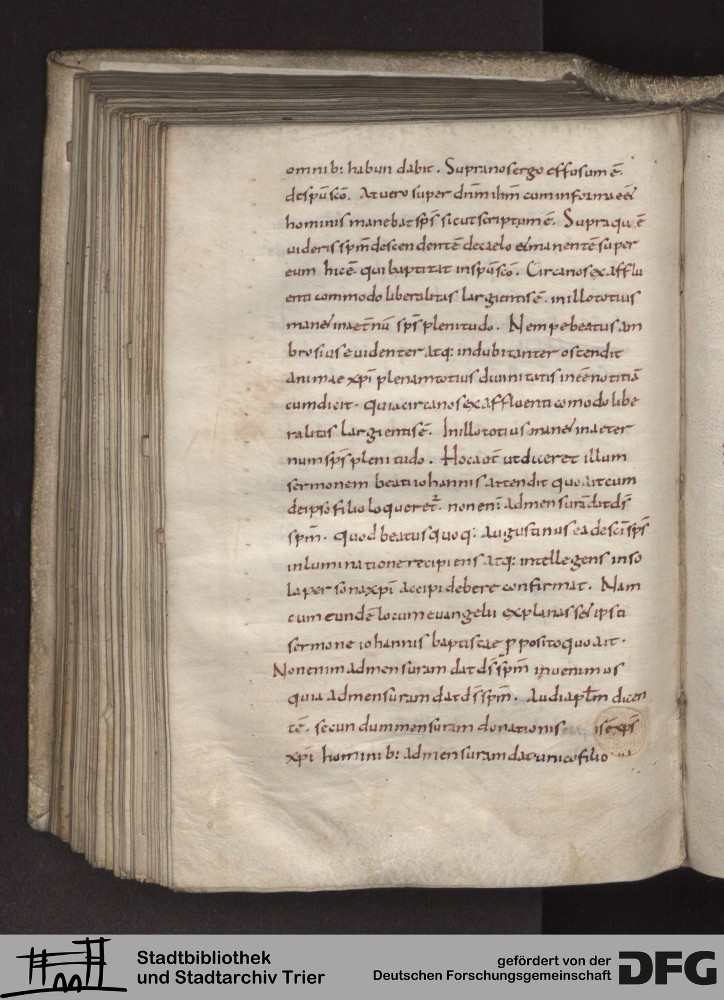 omnib: habundabit. Supranos ergo effusum ē
despūscō. At vero super dn̄m ihm̄ cum informa eēt
hominis manebat sp̄s sicut scriptum ē. Supra quē
videris sp̄m descendentē decaelo et manentē super
eum hic ē qui baptizat insp̄uscō. Circa nos exafflu
enti commodo liberalitas largientis ē. in illo totius
manet in aet̄nū sp̄s plenitudo. Nempe beatus am
brosius evidenter atq: indubitanter ostendit
animae xp̄i plenam totius divinitatis ineē notitiā
cum dicit. quia circa nos exaffluenti comodo libe
ralitas largientis ē. In illo totius manet in aeter
num sp̄s plenitudo. Hoc aūt ut diceret illum
sermonem beati iohannis attendit quo ait cum
dei ipso filio loqueret̄. non enī admensurā dat ds̄
sp̄m. quod beatus quoq: augustinus ea de sc̄i sp̄s
inluminatione recipiens atq: intellegens in so
la persona xp̄i accipi debere confirmat. Nam
cum eundē locum evangelii explanasset ipsi
sermone iohannis baptistae p̄posito quo ait.
Non enim admensuram dat ds̄ sp̄m invenimus
quia admensuram dat ds̄ sp̄m. Audi apl̄m dicen
tē. secundum mensuram donationis
xp̄i hominib: admensuram dat unico filio
Stadtbibliothek
und Stadtarchiv Trier
gefördert von der
Deutschen Forschungsgemeinschaft
DFG